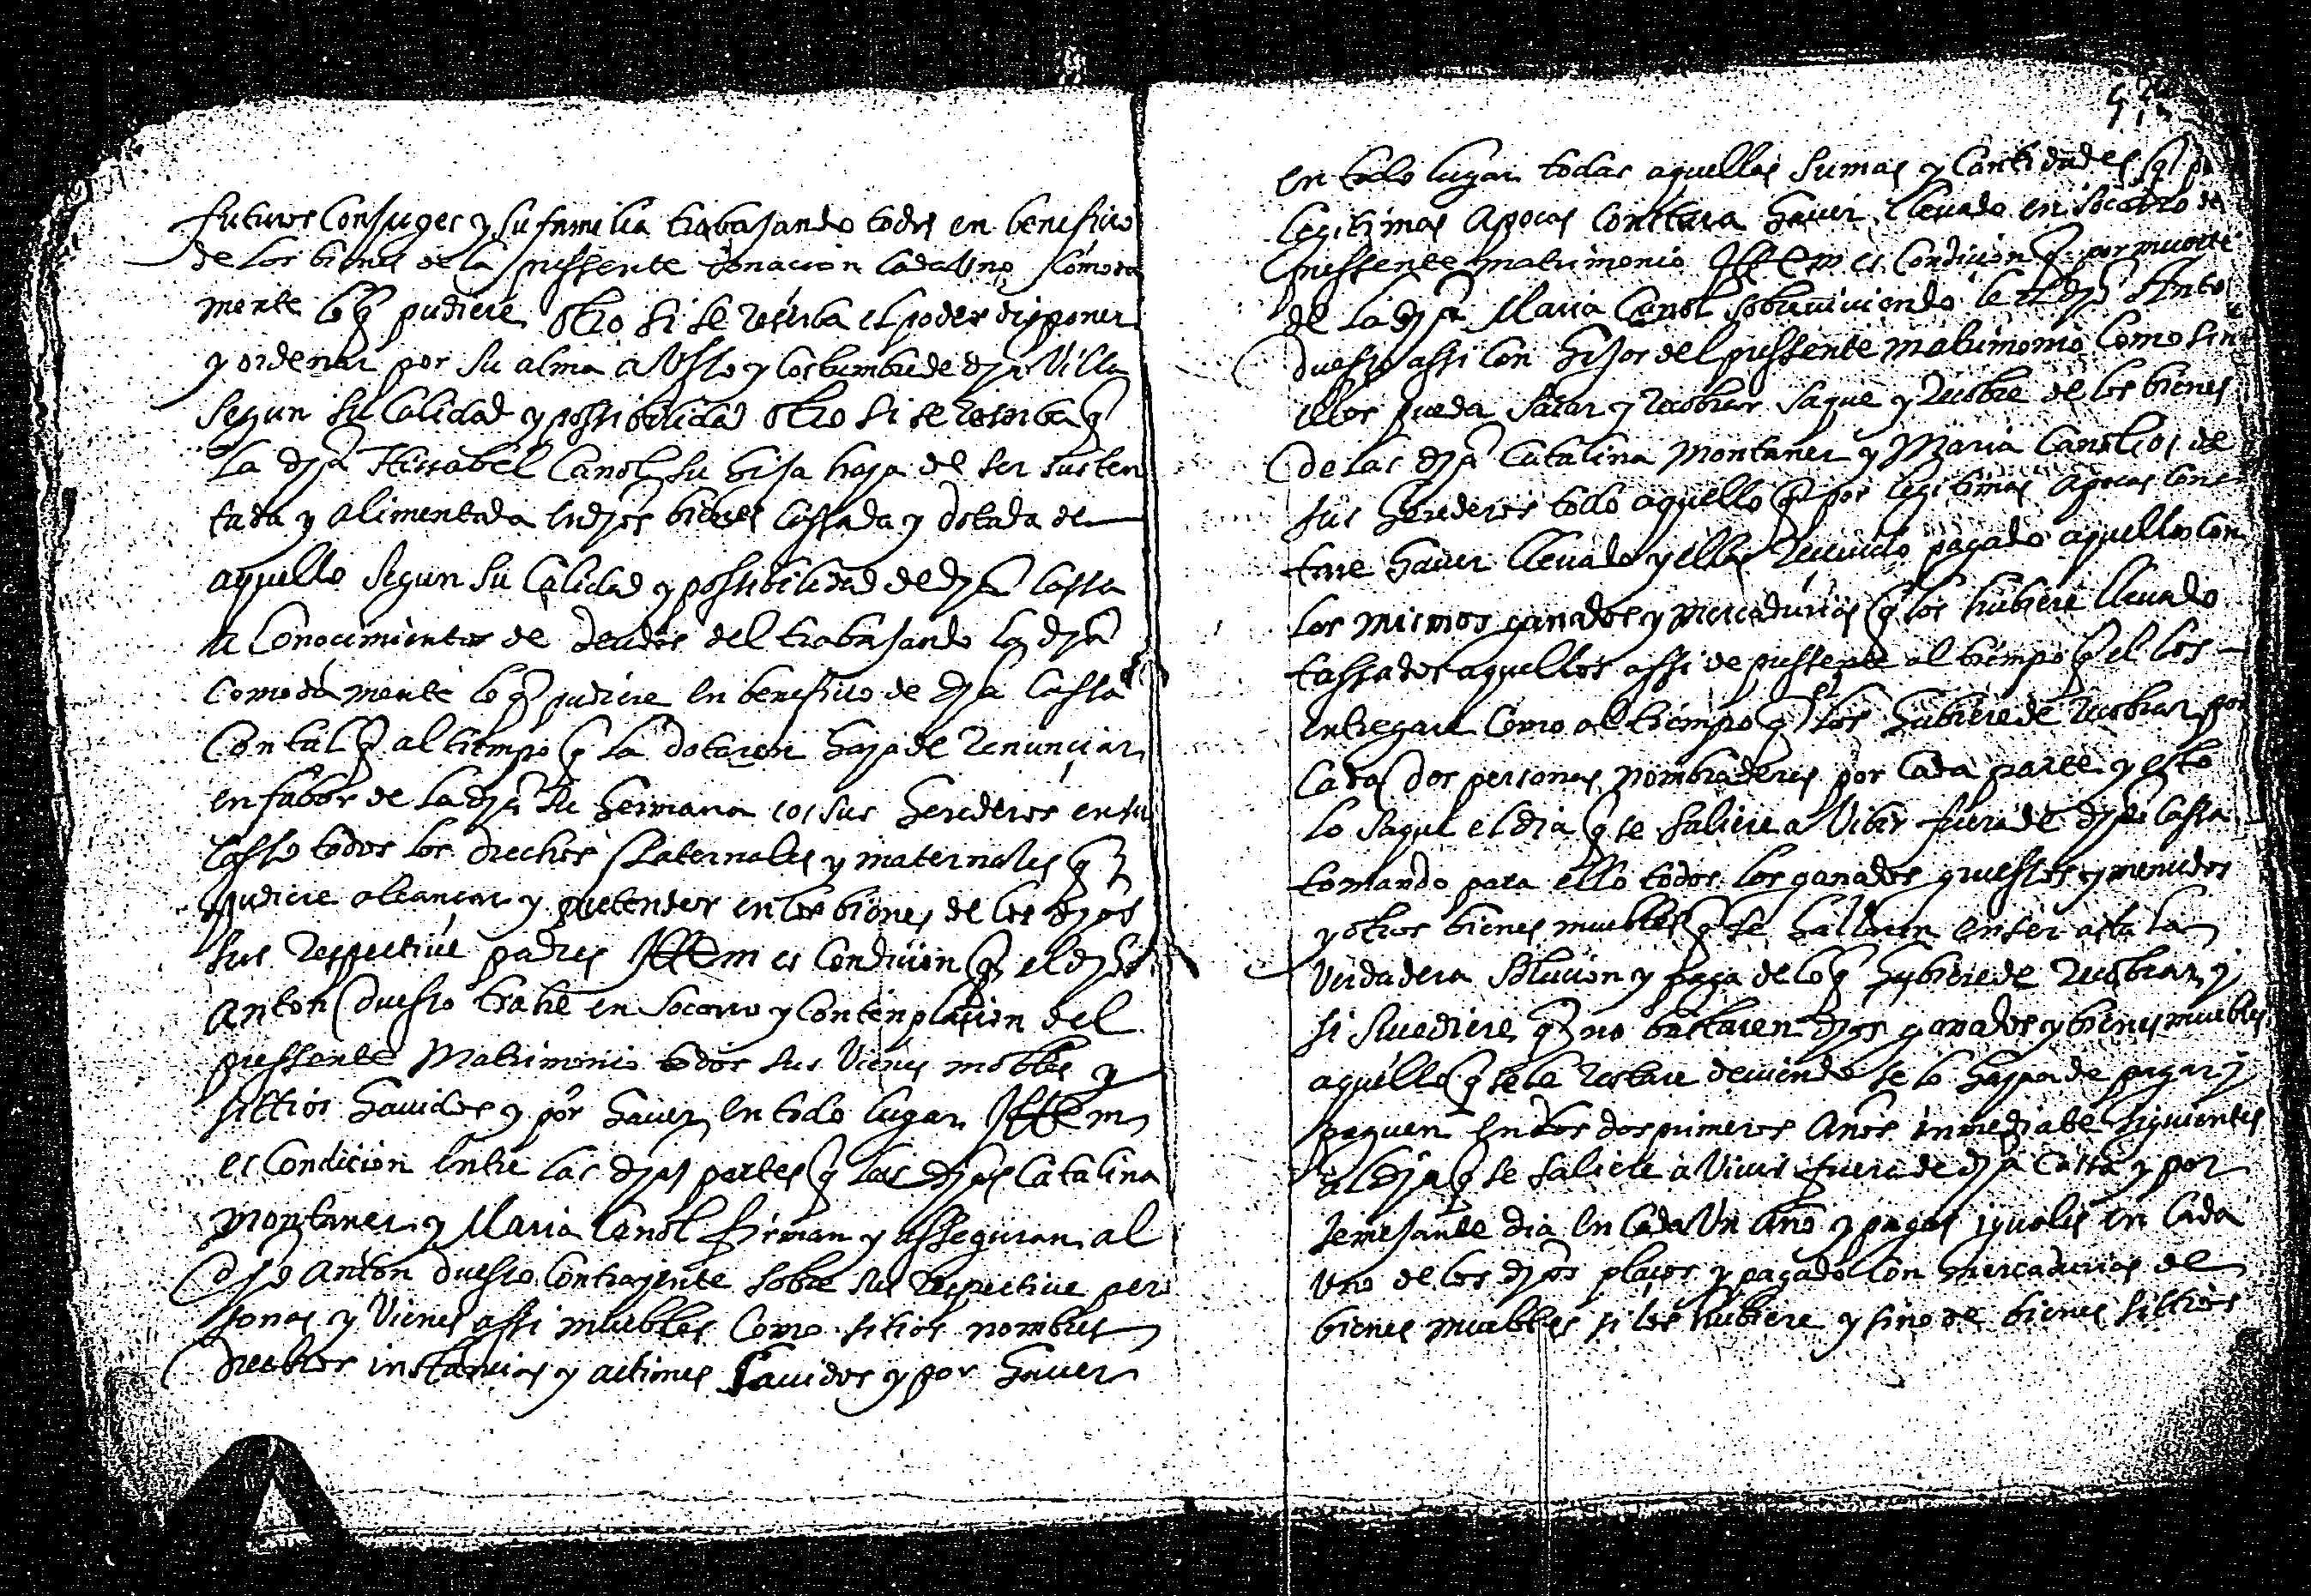 futuros Conjuges y su familia trabajando todos en beneficio
de los bienes de la pressente donacion cada Uno Comoda
mente lo q̃ pudiere, Otro si se reserba el poder disponer
y ordenar por su alma a Usso y costumbre de dha Villa
segun su Calidad y possibilidad Otro si se reserba q̃
la dha Hissabel Canol su hija haya de ser susten
tada y alimentada en dhos bienes cassada y dotada de
aquello segun su Calidad y possibilidad de dha Cassa
a Conocimientos de deudos del trabajando la dha
Comodamente lo q̃ pudiere en beneficio de dha Cassa
Con tal q̃ al tiempo q̃ la dotaren haya de Renunciar
en fabor de la dha su hermana o sus herederos en su
Casso todos los drechos Paternales y maternales q̃
pudiere alcançar y pretender en los bienes de los dhos
sus respective padres Ittem es Condicion q̃ el dho
Anton duesso trahe en Socorro y Contenplacion del
pressente Matrimonio todos sus Vienes mobles y
sittios havidos y por haver en todo lugar Ittem
es Condicion entre las dhas partes q̃ las dhas Catalina
Montaner y Maria Canol firman y asseguran al
dho Anton duesso Contrayente sobre sus respective per
sonas y Vienes assi muebles Como sitios nombres
drechos instancias y actiones havidos y por haver
en todo lugar todas aquellas sumas y Cantidades q̃ p
legitimas Apocas Constara haver llevado en socorro de
pressente matrimonio Ittem es Condicion q̃ por muerte
de la dha Maria Canol sobreviviendole el dho Anto
duesso assi con hijos del pressente matrimonio Como sin
ellos pueda sacar y recobrar saque y recobre de los bienes
de las dhas Catalina Montaner y Maria Canol o de
sus herederos todo aquello q̃ por legitimas Apocas Cons
tare haver llevado y ellas Recevido pagado aquello con
los mismos ganados y mercadurias q̃ los hubiere llevado
tassados aquellos assi de pressente al tiempo q̃ el los
entregare Como al tiempo q̃ el los hubiere de recobrar por
Cada dos personas nombraderas por Cada parte y esto
lo saque el dia q̃ se saliere a Vibir fuera de dha Cassa
tomando para ello todos los ganados gruessos y menudos
y otros bienes muebles q̃ se hallaren en ser asta la
Verdadera solucion y paga de lo q̃ hubiere de Recobrar y
si sucediere q̃ no bastaren dhos ganados y bienes muebles
aquello q̃ se le restare deviendo se lo hayan de pagar y
paguen en los dos primeros Años inmediate siguientes
al dia q̃ se saliere a Vivir fuera de dha Cassa y por
semejante dia en Cada Un Año y pagas yguales en Cada
Uno de los dhos plaços y pagado Con mercadurias de
bienes muebles si los hubiere y sino de bienes sittios